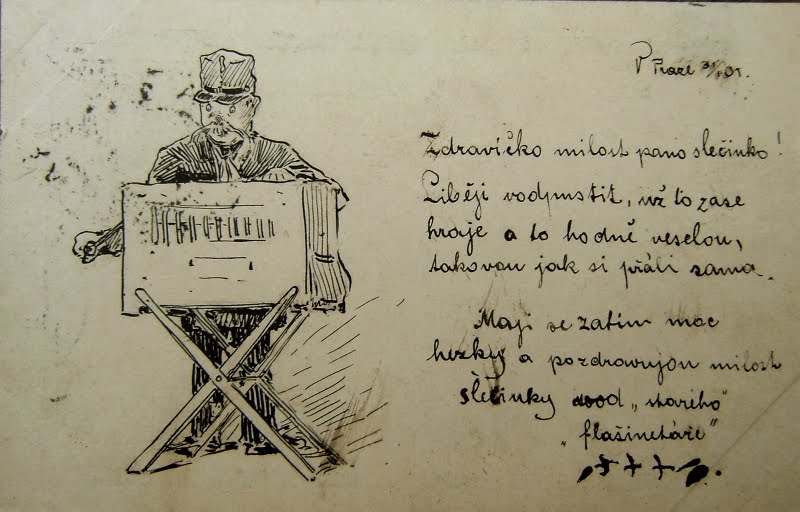 V Praze 3/1 01.
Zdravíčko milost pano slečinko!
Liběji vodpustit, už to zase
hraje a to hodně veselou,
takovou jak si přáli sama.
Mají se zatím moc
hezky a pozdravujou milost
slečinky vod „starého"
„flašinetáře"